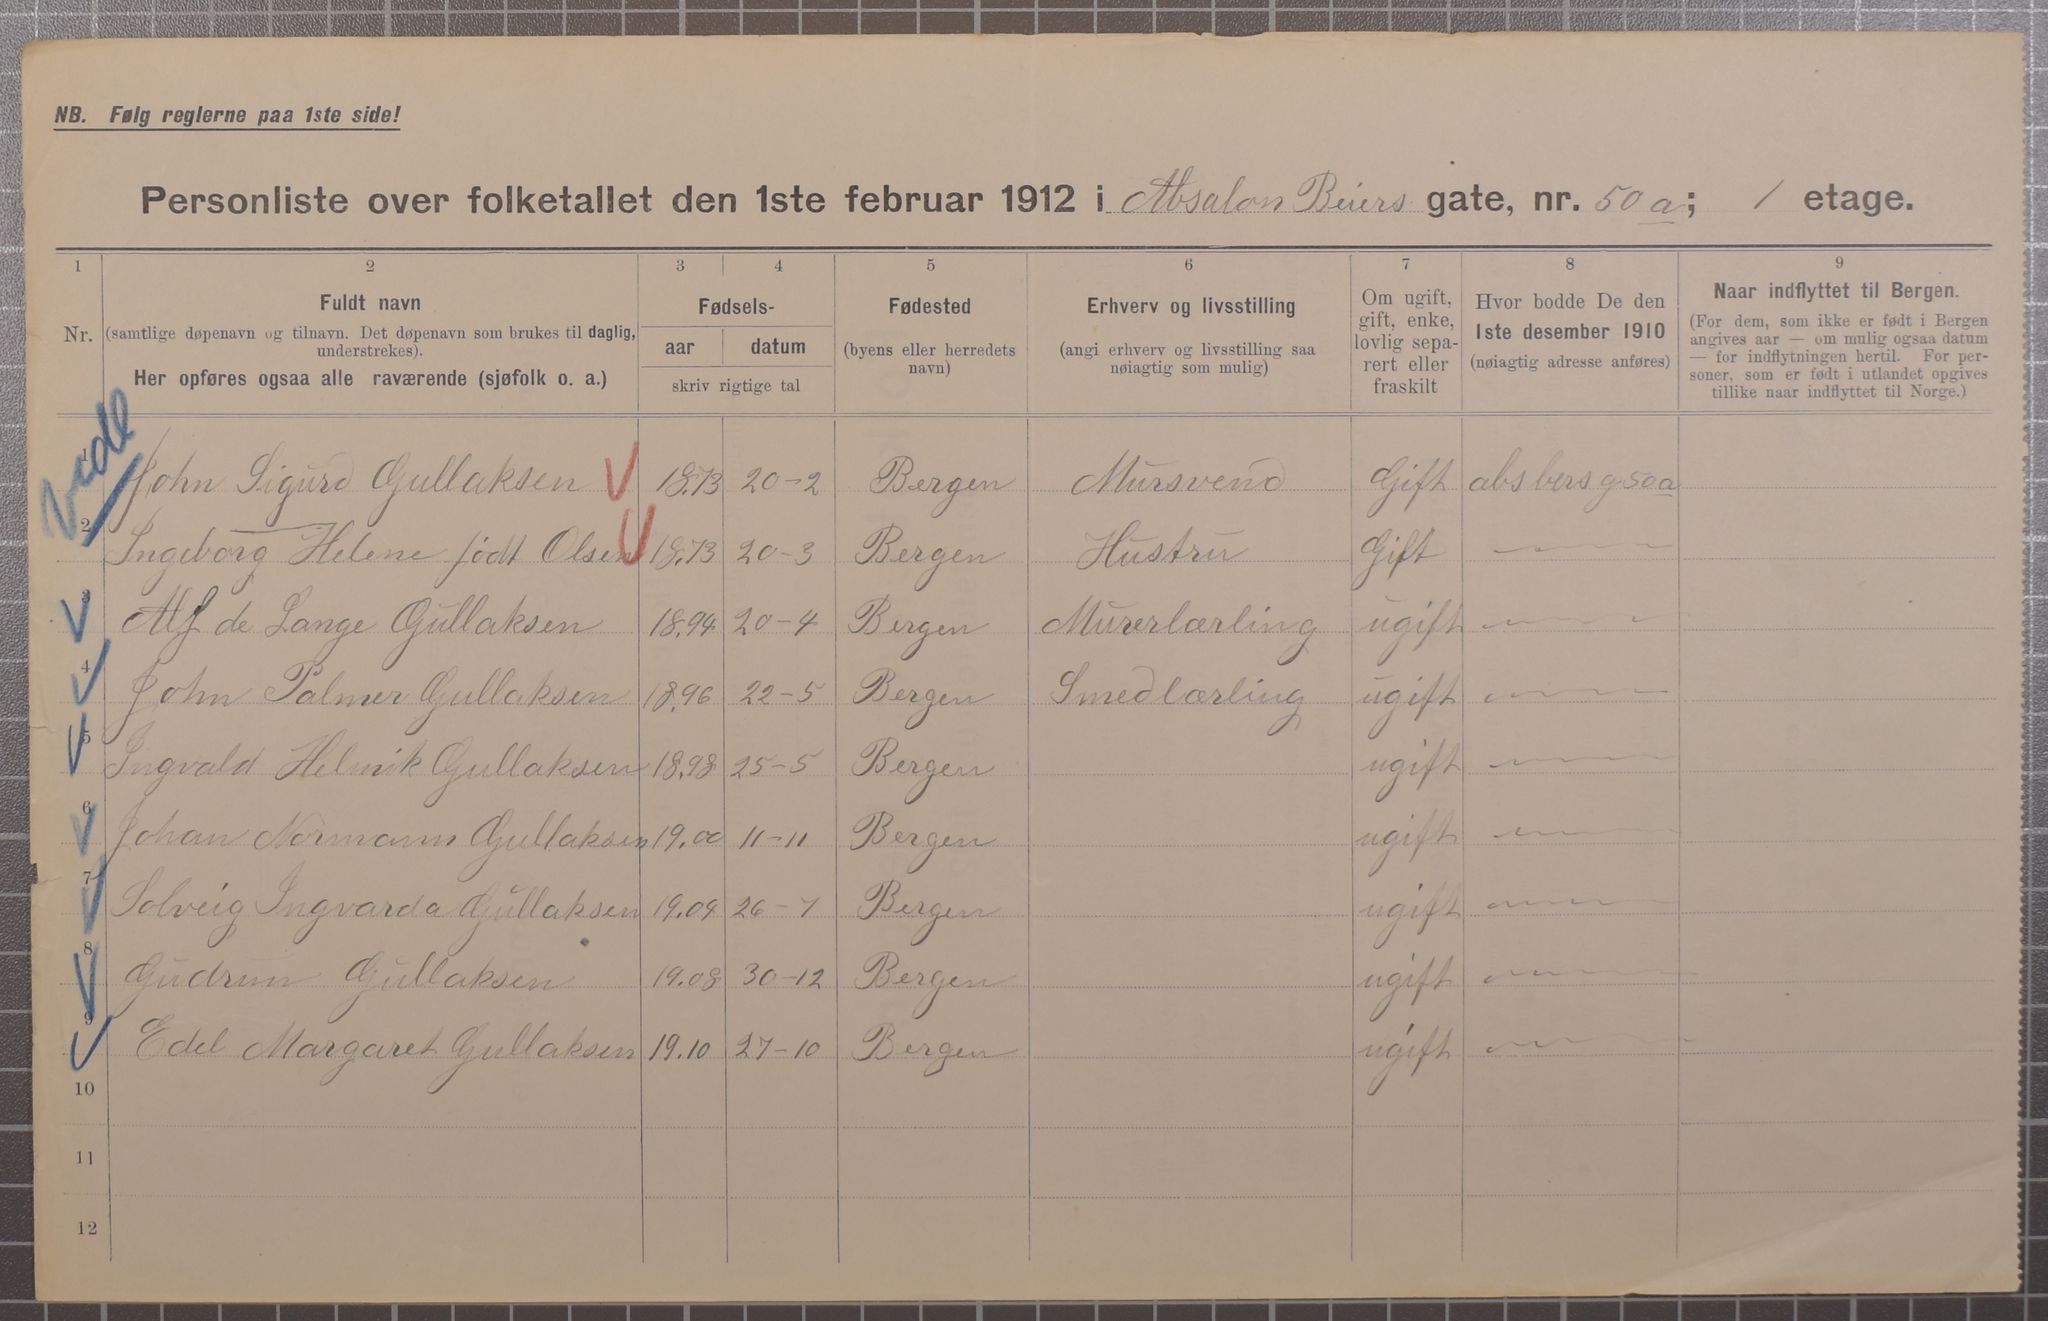 NB. Følg reglerne paa 1ste side!
Personliste over folketallet den 1ste februar 1912 i Absalon Beiers gate, nr. 50 a; 1 etage.
1 2 3 4 5 6 7 8 9
Nr.
Fuldt navn
(samtlige døpenavn og tilnavn. Det døpenavn som brukes til daglig,
understrekes).
Her opføres ogsaa alle raværende (sjøfolk o. a.)
Fødsels-
aar datum
skriv rigtige tal
Fødested
(byens eller herredets
navn)
Erhverv og livsstilling
(angi erhverv og livsstilling saa
nøiagtig som mulig)
Om ugift,
gift, enke,
lovlig sepa-
rert eller
fraskilt
Hvor bodde De den
1ste desember 1910
(nøiagtig adresse anføres)
Naar indflyttet til Bergen.
(For dem, som ikke er født i Bergen
angives aar — om mulig ogsaa datum
— for indflytningen hertil. For per-
soner, som er født i utlandet opgives
tillike naar indflyttet til Norge.)
1 John Sigurd Gullaksen 18.73 20-2 Bergen Mursvend Gift abs bers g 50 a
2 Ingeborg Helene født Olsen 18.73 20-3 Bergen Hustru Gift
3 Alf de Lange Gullaksen 18.94 20-4 Bergen Murerlærling ugift
4 John Palmer Gullaksen 18.96 22-5 Bergen Smedlærling ugift
5 Ingvald Helmik Gullaksen 18.98 25-5 Bergen ugift
6 Johan Normann Gullaksen 19.00 11-11 Bergen ugift
7 Solveig Ingvarda Gullaksen 19.04 26-7 Bergen ugift
8 Gudrun Gullaksen 19.08 30-12 Bergen ugift
9 Edel Margaret Gullaksen 19.10 27-10 Bergen ugift
10
11
12